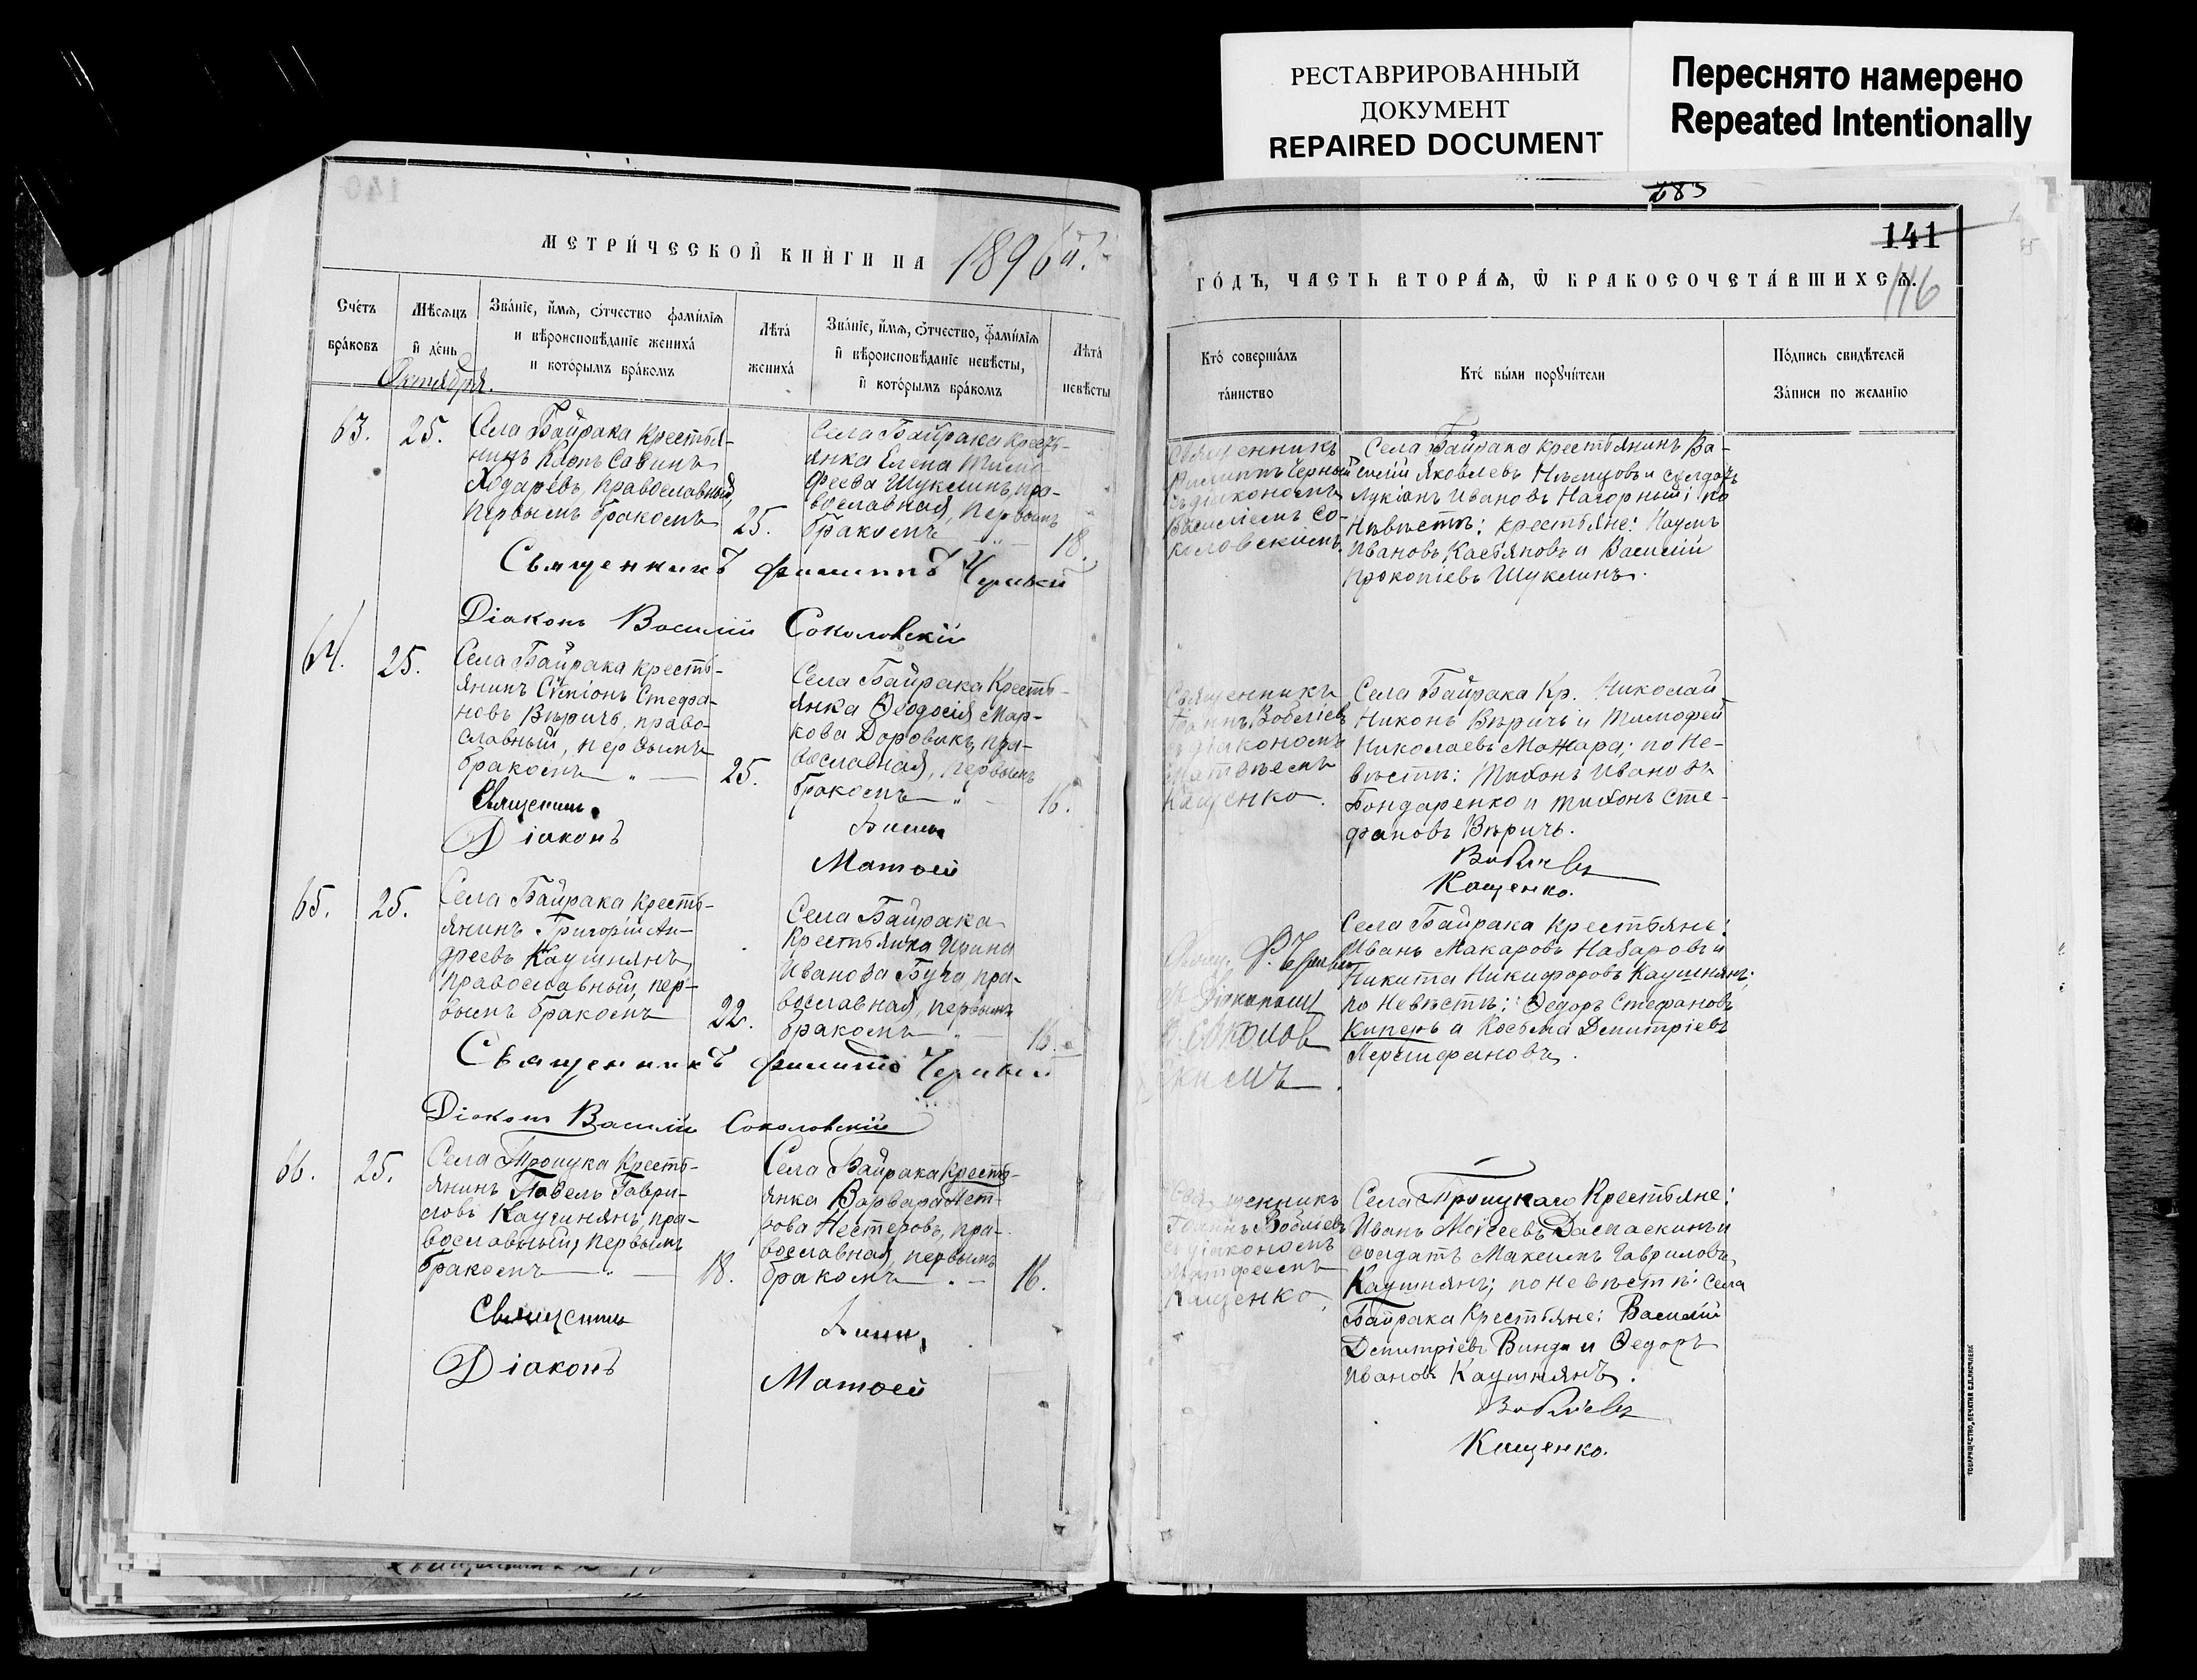 РЕСТАВРИРОВАННЫЙ
ДОКУМЕНТ
REPAIRED DOCUMENT
Переснято намерено
Repeated Intentionally
МЕТРИ́ЧЕСКОЙ КНИ́ГИ НА 1896й.
Сче́тъ
бра́ковъ
Мѣ́сяцъ
и҆ де́нь
Октября.
Зва́нїе, и҆́мѧ, ѻ҆́тчество фами́лїѧ
и вѣроисповѣ́данїе жениха́
и кото́рымъ бра́комъ
Лѣта́
жениха́
Зва́нїе, и҆́мѧ, ѻ҆́тчество, фами́лїѧ
и҆ вѣроисповѣ́данїе невѣ́сты,
и҆ кото́рымъ бра́комъ
Лѣта́
невѣ́сты
63.
25.
Села Байрака крестья-
нинъ Савинъ
Ходаревъ, православный,
первымъ бракомъ
25.
Села Байрака кресть-
янка Елена Тимо-
феева Шуклинъ, пра-
вославная, первымъ
бракомъ
18.
Священникъ Филиппъ Черный
Діаконъ Василій Соколовскій
64.
25.
Села Байрака кресть-
янинъ Стефа-
новъ Вѣричъ, право-
славный, первымъ
бракомъ — " —
25.
Села Байрака Кресть-
янка Ѳеодосія Мар-
кова Доровикъ, пра-
вославная, первымъ
бракомъ — " —
16.
Священникъ
Діаконъ
Матѳей
65.
25.
Села Байрака кресть-
янинъ Григорій Ан-
дреевъ Каушнянъ,
православный, пер-
вымъ бракомъ
22.
Села Байрака
Крестьянка Ирина
Иванова Буга, пра-
вославная, первымъ
бракомъ — " —
16.
Священникъ Филиппъ Черный
Діаконъ Василій Соколовскій
66.
25.
Села Троицка Кресть-
янинъ Павелъ Гаври-
ловъ Каушнянъ, пра-
вославный, первымъ
бракомъ — " —
18.
Села Байрака кресть-
янка Варвара Пет-
рова Нестеровъ, пра-
вославная, первымъ
бракомъ — " —
16.
Священникъ
Діаконъ
Матѳей
283
141
116
ГО́ДЪ, ЧАСТЬ ВТОРА́Ѧ, Ѡ҆ БРАКОСОЧЕТА́ВШИХСѦ.
Кто́ соверша́лъ
та́инство
Кто́ бы́ли порꙋчи́тели
По́дпись свидѣ́телей
За́писи по жела́нїю
Священникъ
Филиппъ Черный
съ діакономъ
Василіемъ Со-
коловскимъ.
Села Байрака крестьянинъ Ва-
силій Яковлевъ Нѣмцовъ и солдатъ
Лукіанъ Ивановъ Нагорный; по
Невѣстѣ: крестьяне: Наумъ
Ивановъ Касьяновъ и Василій
Прокопіевъ Шуклинъ.
Священникъ
Іоаннъ Вобліевъ
съ діакономъ
Матѳеемъ
Кащенко.
Села Байрака Кр. Николай
Никонъ Вѣричъ и Тимофей
Николаевъ Мажара; по Не-
вѣстѣ: Тихонъ Ивановъ
Бондаренко и Тихонъ Сте-
фановъ Вѣричъ.
Вобліевъ
Кащенко.
Ф. Черный
съ Діакономъ
В. Соколов
скимъ.
Села Байрака Крестьяне:
Иванъ Макаровъ Назаровъ и
Никита Никифоровъ Каушнянъ;
по Невѣстѣ: Ѳедоръ Стефановъ
Кипень и Косьма Димитріевъ
Священникъ
Іоаннъ Вобліевъ
съ діакономъ
Матфеемъ
Кащенко.
Села Троицкаго Крестьяне:
Иванъ Моисеевъ Даскаскинъ и
солдатъ Максимъ Гавриловъ
Каушнянъ; по невѣстѣ: села
Байрака Крестьяне: Василій
Димитріевъ Винда и Ѳедоръ
Ивановъ Каушнянъ.
Вобліевъ
Кащенко.